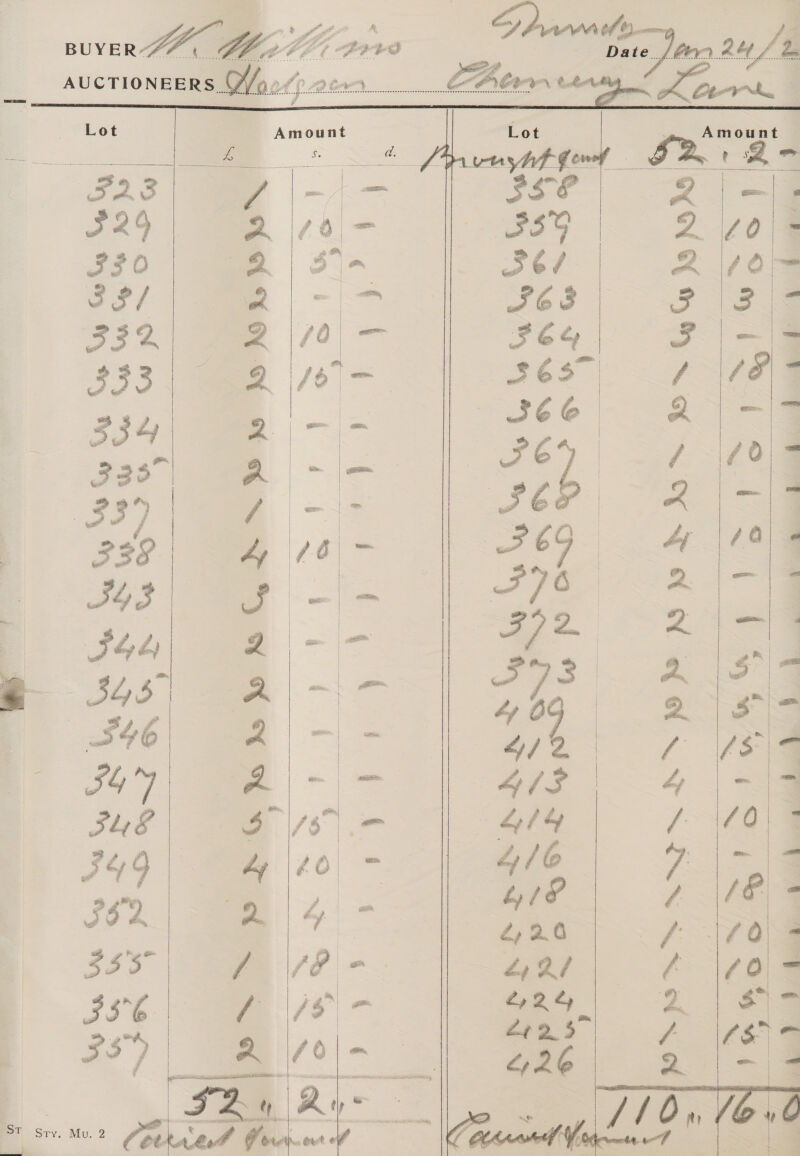 Thursday
BUYER W. Wilkins Date Jan 24/2
AUCTIONEERS Hodgson Chancery Lane
Lot Amount
£ s. d.
323 1 - -
329 2 10 -
330 2 5 -
331 2 - -
332 2 10 -
333 2 15 -
334 2 - -
335 2 - -
337 1 - -
338 4 10 -
343 3 - -
344 2 - -
345 2 - -
346 2 - -
347 2 - -
348 5 15 -
349 4 10 -
352 2 4 -
355 1 18 -
356 1 15 -
357 2 10 -
52 " 2 " -
Carried forward
Lot Amount
Brought forwd 52 " 2 -
358 2 - -
359 2 10 -
361 2 10 -
363 3 3 -
364 3 - -
365 1 18 -
366 2 - -
367 1 10 -
368 2 - -
369 4 10 -
370 2 - -
372 2 - -
373 2 5 -
409 2 5 -
412 1 15 -
413 4 - -
414 1 10 -
416 7 - -
418 1 18 -
420 1 10 -
421 1 10 -
424 2 5 -
425 1 15 -
426 2 - -
110 " 16 " 0
Carried forward
ST Srv. Mu. 2